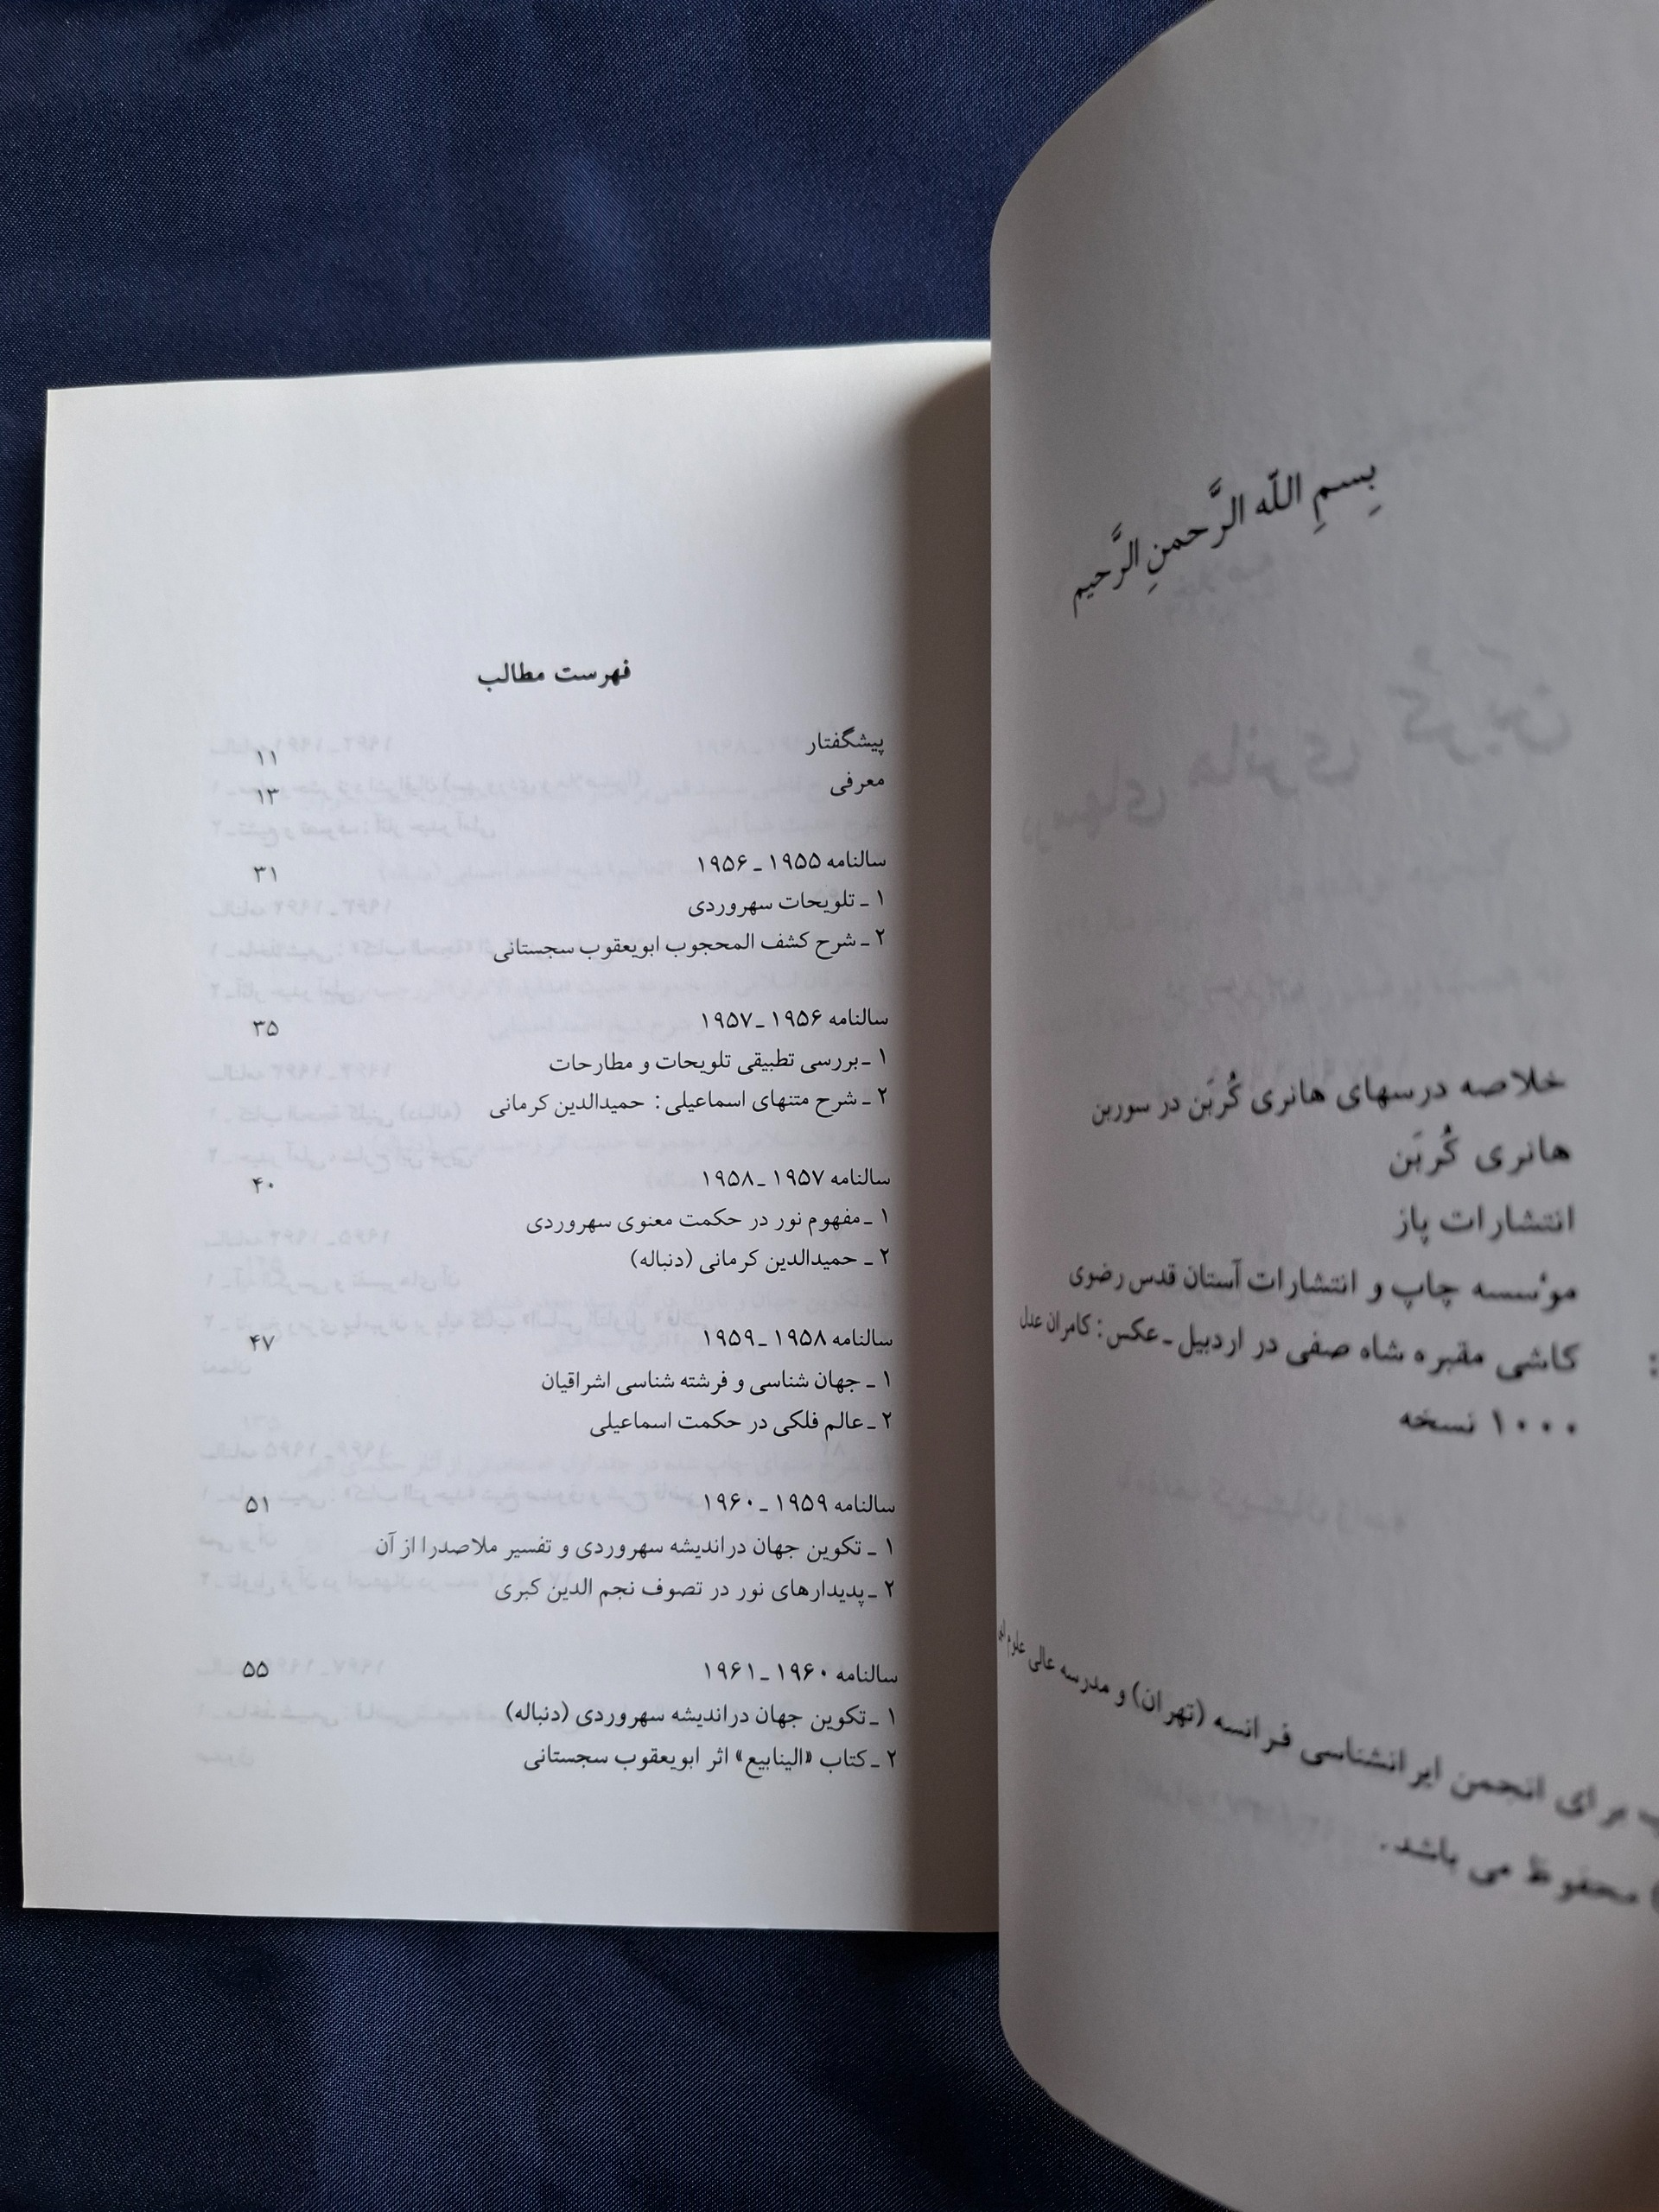 بِسمِ اللّه الرَّحمنِ الرَّحیم
خلاصه درسهای هانری کُربَن در سوربن
هانری کُربَن
انتشارات پاز
موٴسسه چاپ و انتشارات آستان قدس رضوی
کاشی مقبره شاه صفی در اردبیل ـ عکس: کامران عدل
۱۰۰۰ نسخه
برای انجمن ایرانشناسی فرانسه (تهران) و مدرسه عالی علوم
محفوظ می باشد.
فهرست مطالب
پیشگفتار ۱۱
معرفی ۱۳
سالنامه ۱۹۵۵ ـ ۱۹۵۶ ۳۱
۱ ـ تلویحات سهروردی
۲ ـ شرح کشف المحجوب ابویعقوب سجستانی
سالنامه ۱۹۵۶ ـ ۱۹۵۷ ۳۵
۱ ـ بررسی تطبیقی تلویحات و مطارحات
۲ ـ شرح متنهای اسماعیلی: حمیدالدین کرمانی
سالنامه ۱۹۵۷ ـ ۱۹۵۸ ۴۰
۱ ـ مفهوم نور در حکمت معنوی سهروردی
۲ ـ حمیدالدین کرمانی (دنباله)
سالنامه ۱۹۵۸ ـ ۱۹۵۹ ۴۷
۱ ـ جهان شناسی و فرشته شناسی اشراقیان
۲ ـ عالم فلکی در حکمت اسماعیلی
سالنامه ۱۹۵۹ ـ ۱۹۶۰ ۵۱
۱ ـ تکوین جهان دراندیشه سهروردی و تفسیر ملاصدرا از آن
۲ ـ پدیدارهای نور در تصوف نجم الدین کبری
سالنامه ۱۹۶۰ ـ ۱۹۶۱ ۵۵
۱ ـ تکوین جهان دراندیشه سهروردی (دنباله)
۲ ـ کتاب «الینابیع» اثر ابویعقوب سجستانی